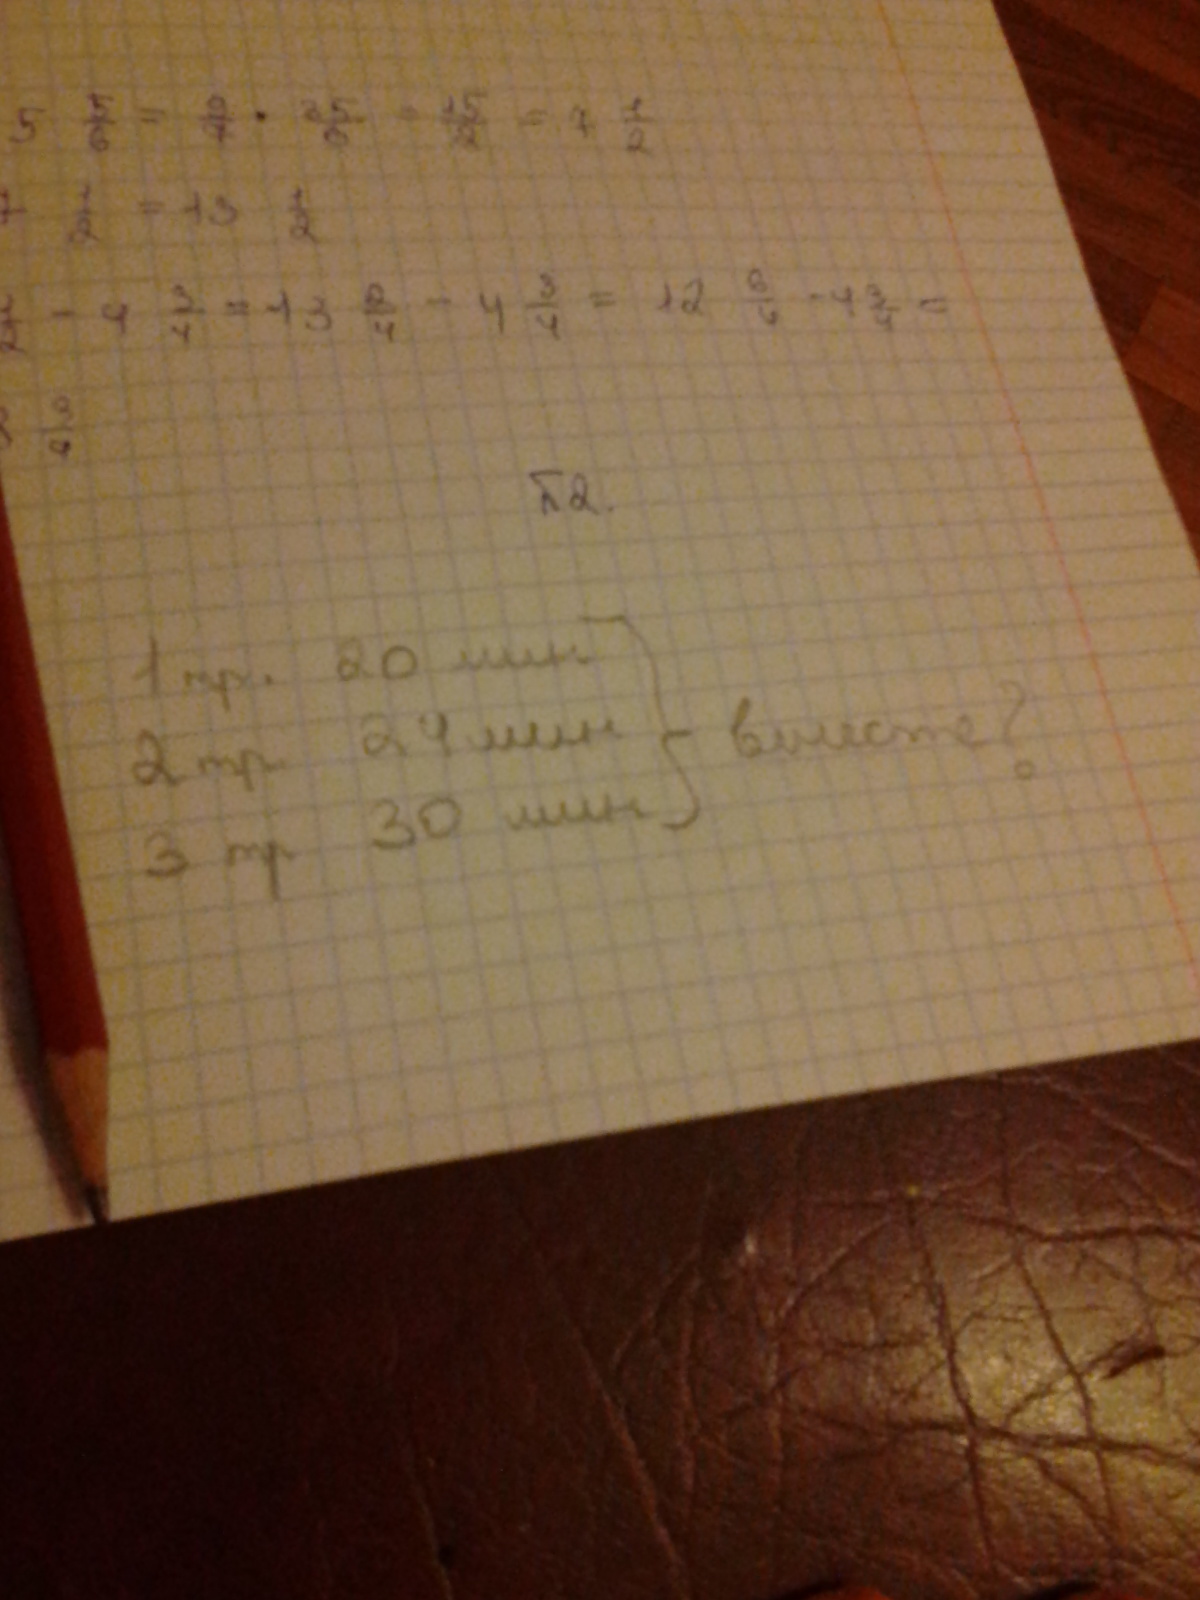 5 5/6 = 9/7 · 35/6 = 15/2 = 7 1/2
7 1/2 = 13 1/2
1/2 - 4 3/4 = 13 2/4 - 4 3/4 = 12 6/4 - 4 3/4 =
3/4
№2.
1 тр. 20 мин
2 тр. 24 мин } вместе?
3 тр 30 мин